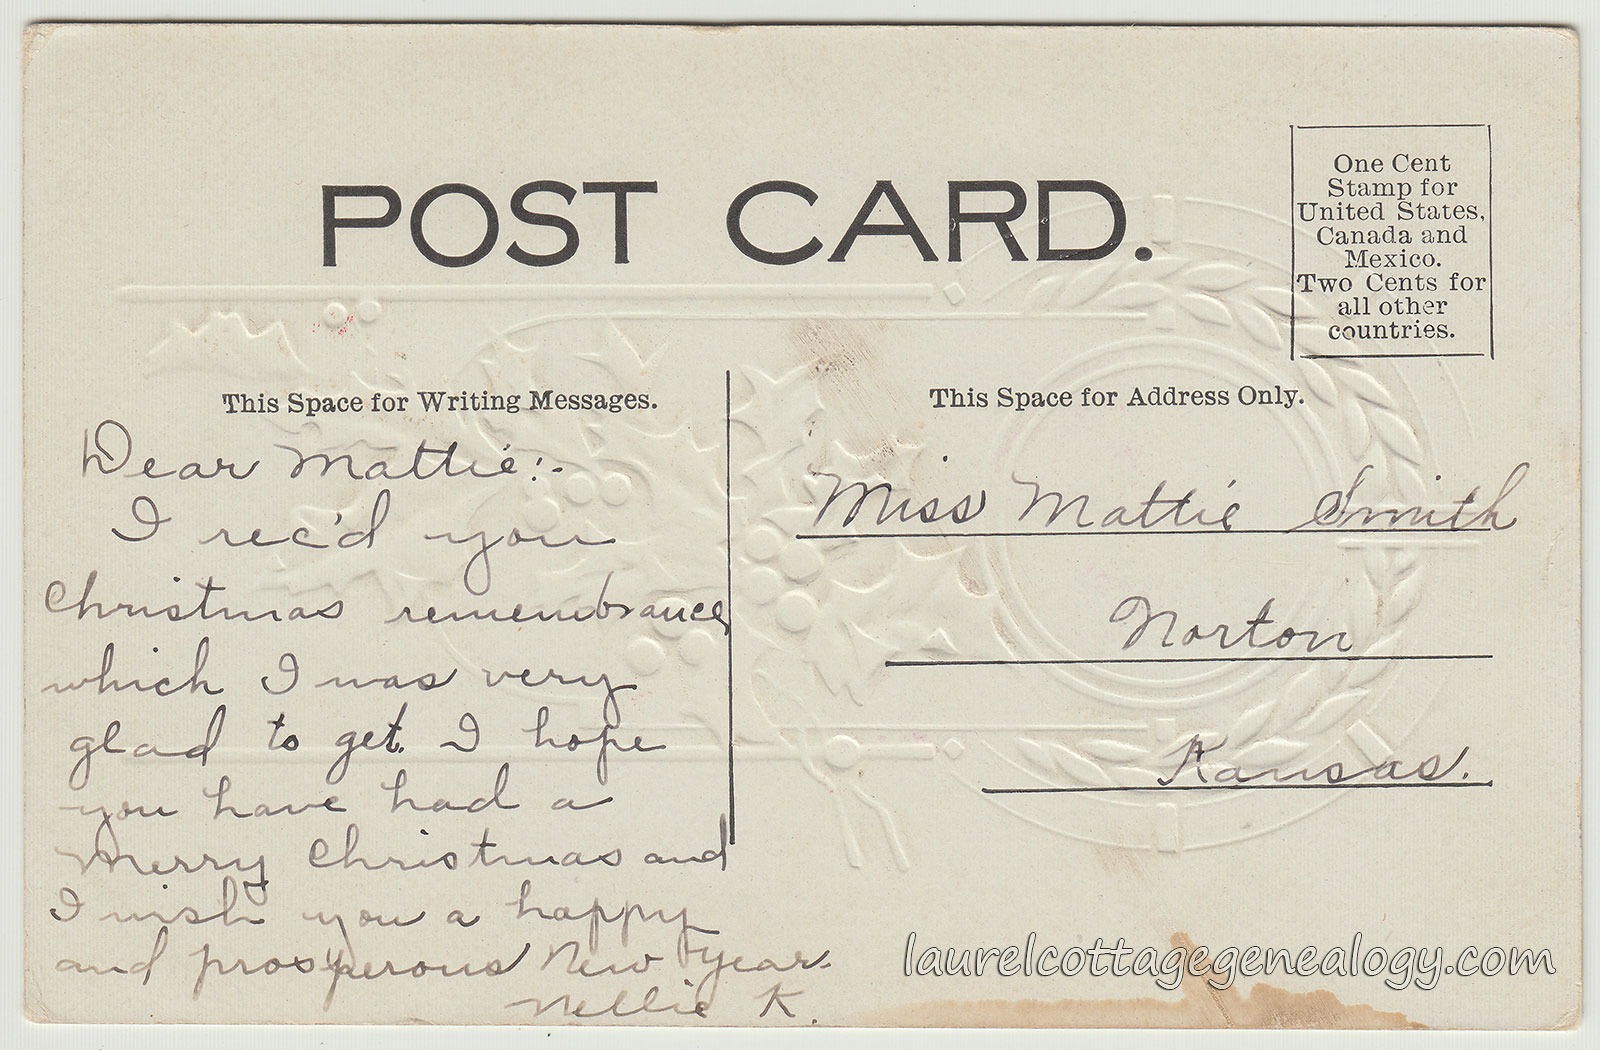 POST CARD.
One Cent
Stamp for
United States,
Canada and
Mexico.
Two Cents for
all other
countries.
This Space for Writing Messages.
Dear Mattie:-
I rec'd you
Christmas remembrance
which I was very
glad to get. I hope
you have had a
Merry Christmas and
I wish you a happy
and prosperous New Year.
Nellie K.
This Space for Address Only.
Miss Mattie Smith
Norton
Kansas.
laurelcottagegenealogy.com